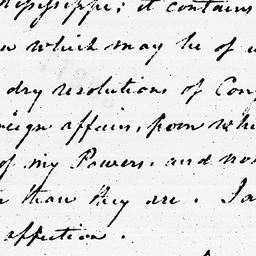 Mississippi; it contains
which may be of
dry resolutions of Con
eign affairs, from whi
of my Powers. and no
than they are. I a
affection.